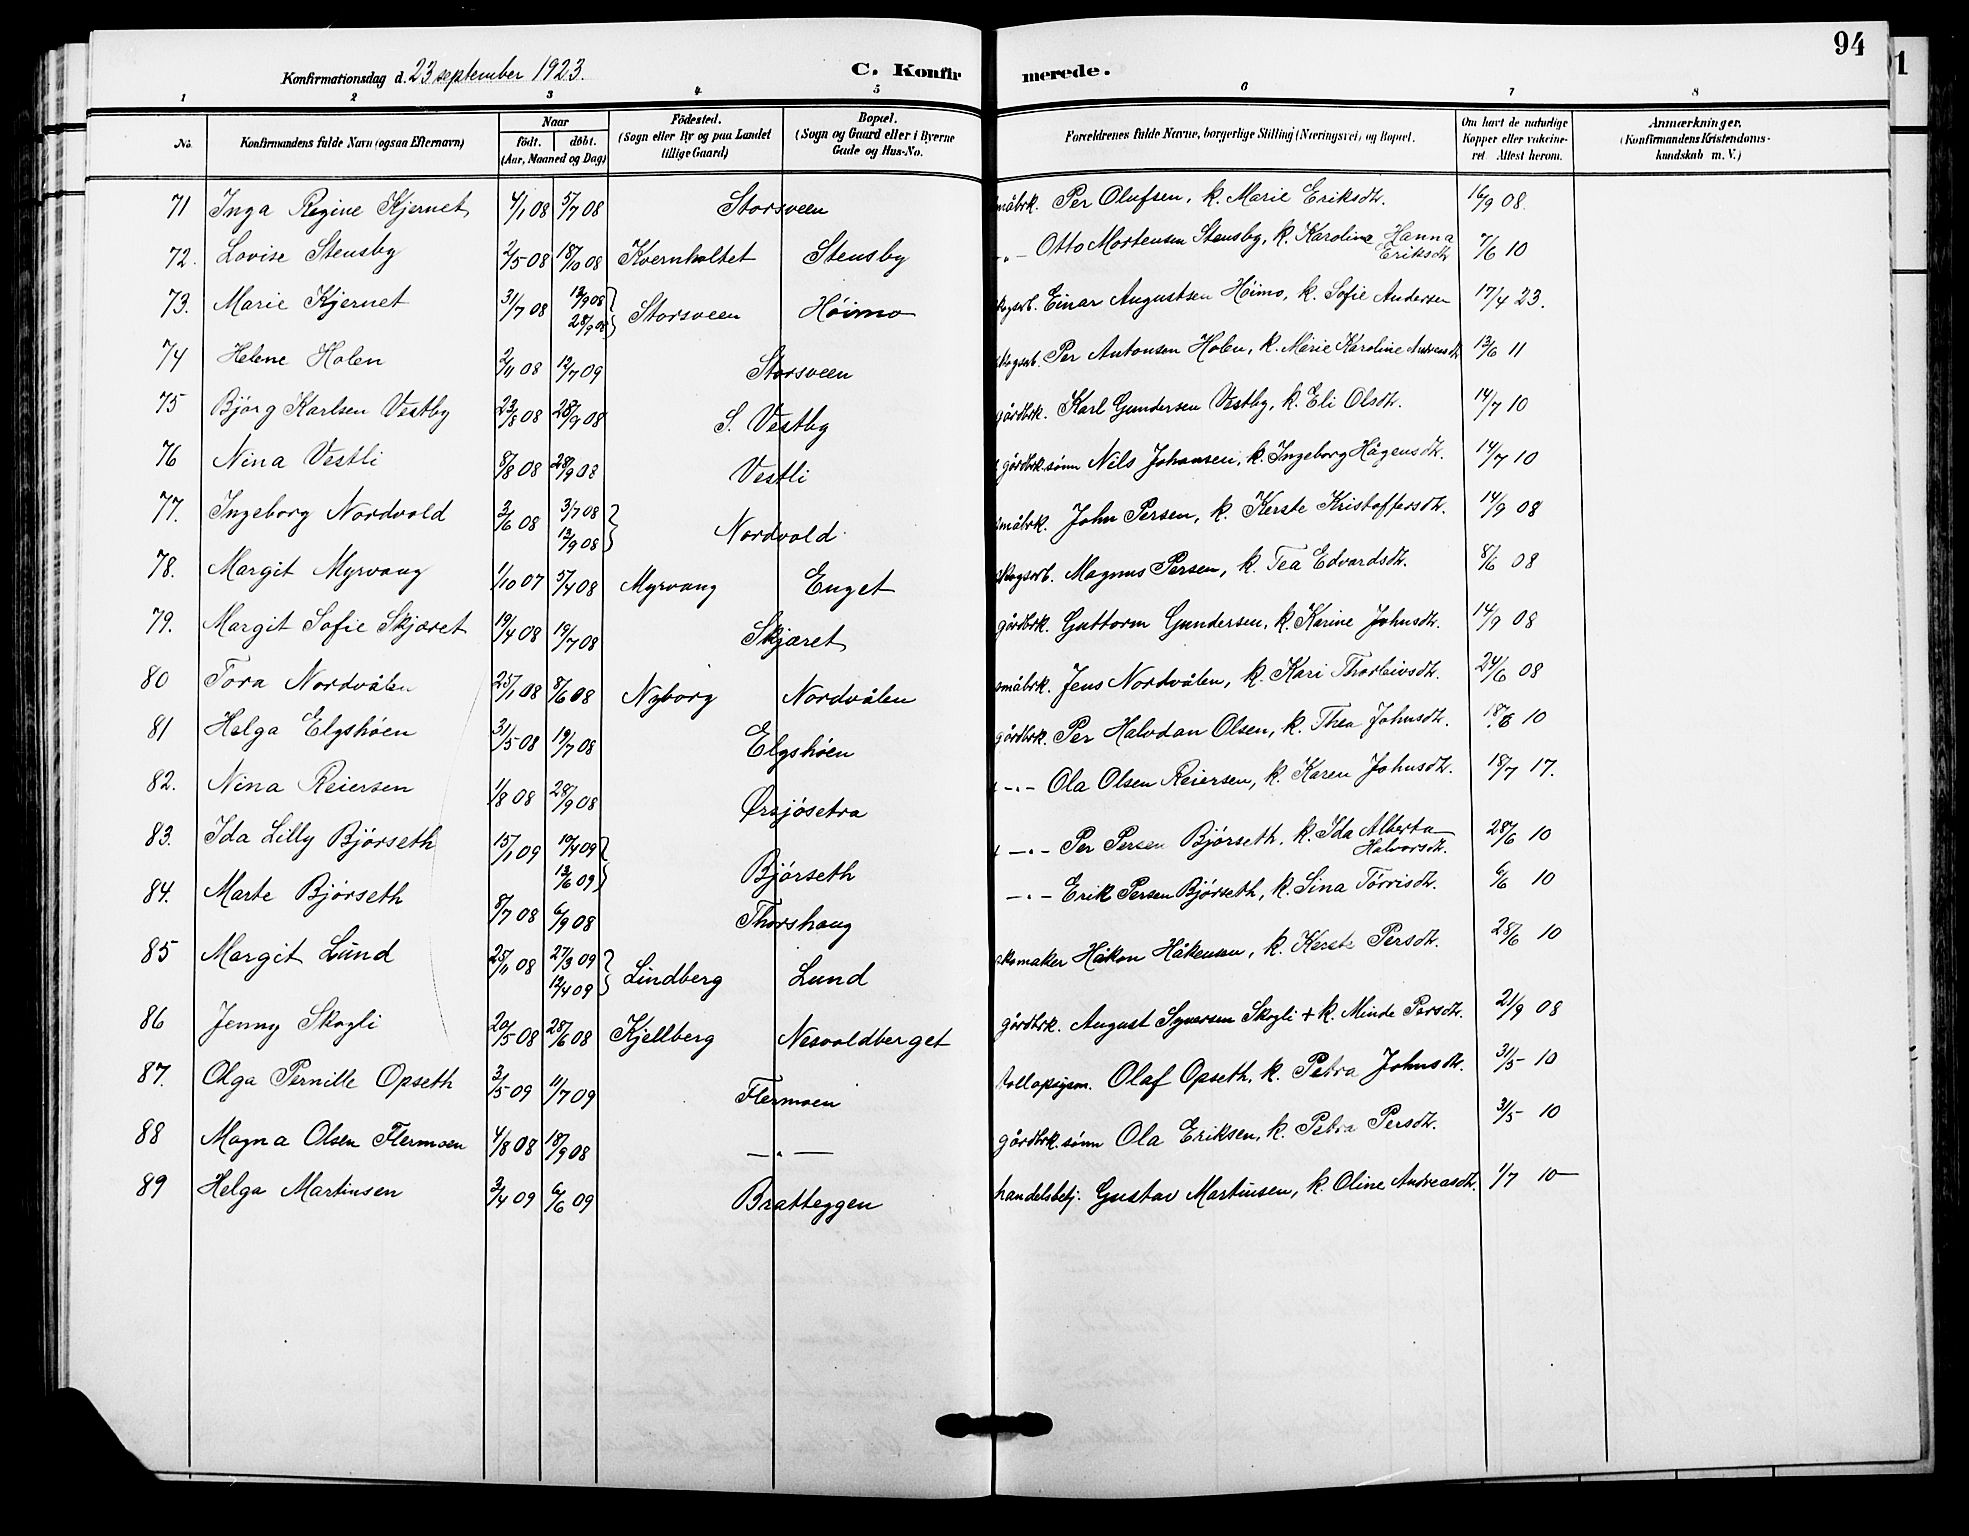 94
1
Konfirmationsdag d. 23 september 1923.
C. Konfirmerede.
1 2 3 4 5 6 7 8
No. Konfirmandens fulde Navn (ogsaa Efternavn) Naar født. døbt. (Aar, Maaned og Dag) Födested. (Sogn eller By og paa Landet tillige Gaard) Bopæl. (Sogn og Gaard eller i Byerne Gade og Hus-No. Forældrenes fulde Navne, borgerlige Stilling (Næringsvei) og Bopæl. Om havt de naturlige Kopper eller vakcineret Attest herom. Anmærkninger. (Konfirmandens Kristendomskundskab m. V.)
71 Inga Regine Kjernet 4/1 08 5/7 08 Storsveen småbrk. Per Olufsen, k. Marie Eriksdt. 16/9 08.
72. Lovise Stensby 2/5 08 18/10 08 Kvernholtet Stensby -"- Otto Mortensen Stensby, k. Karoline Hanna Eriksdt 7/6 10
73. Marie Kjernet 31/7 08 13/9 08 28/9 08 } Storsveen Höimo skogsarb. Einar Augustsen Höimo, k. Sofie Andersen 17/4 23.
74 Helene Holen 2/11 08 12/7 09 Storsveen skogsarb. Per Antonsen Holen, k. Marie Karoline Andreasdt 13/6 11
75 Björg Karlsen Vestby 23/8 08 28/9 08 S. Vestby gårdbrk. Karl Gundersen Vestby, k. Eli Olsdt. 14/7 10
76 Nina Vestli 8/8 08 28/9 08 Vestli gårdbrk. sönn Nils Johansen, k. Ingeborg Hågensdt. 14/7 10
77. Ingeborg Nordvold 3/6 08 3/7 08 13/9 08 } Nordvold småbrk. John Persen, k. Kerste Kristoffersdt. 14/9 08
78. Margit Myrvang 1/10 07 5/4 08 Myrvang Enget skogsarb. Magnus Persen, k. Tea Edvardsdt. 8/6 08
79. Margit Sofie Skjæret 19/4 08 19/7 08 Skjæret gårdbrk. Guttorm Gundersen, k. Karine Johnsdt. 14/9 08
80 Tora Nordvålen 25/1 08 8/6 08 Nyborg Nordvålen småbrk. Jens Nordvålen, k. Kari Thorleivsdt. 24/6 08
81 Helga Elgshöen 31/5 08 19/7 08 Elgshöen gårdbrk. Per Halvdan Olsen, k. Thea Johnsdt. 18/6 10
82. Nina Reiersen 1/8 08 28/9 08 Ørsjösetra -"- Ola Olsen Reiersen, k. Karen Johnsdt. 18/7 17.
83. Ida Lilly Björseth 15/1 09 10/4 09 13/6 09 } Björseth -"- Per Persen Björseth, k. Ida Alberta Halvorsdt. 28/6 10
84. Marte Björseth 8/7 08 6/9 08 Thorshaug -"- Erik Persen Björseth, k. Lina Törrisdt. 6/6 10
85 Margit Lund 25/11 08 27/3 09 12/4 09 } Lindberg Lund skomaker Håkon Håkensen, k. Kerste Persdt. 28/6 10
86 Jenny Skogli 20/5 08 28/6 08 Kjellberg Nesvoldberget gårdbrk. August Syversen Skogli + k. Minde Persdt. 21/9 08
87. Olga Pernille Opseth 3/5 09 11/7 09 Flermoen tollopsynsm. Olaf Opseth, k. Petra Johnsdt. 31/5 10
88 Magna Olsen Flermoen 4/8 08 18/9 08 -"- gårdbrk. sönn Ola Eriksen, k. Petra Persdt. 31/5 10
89 Helga Martinsen 3/4 09 6/6 09 Bratteggen handelsbetj. Gustav Martinsen, k. Oline Andreasdt. 1/7 10